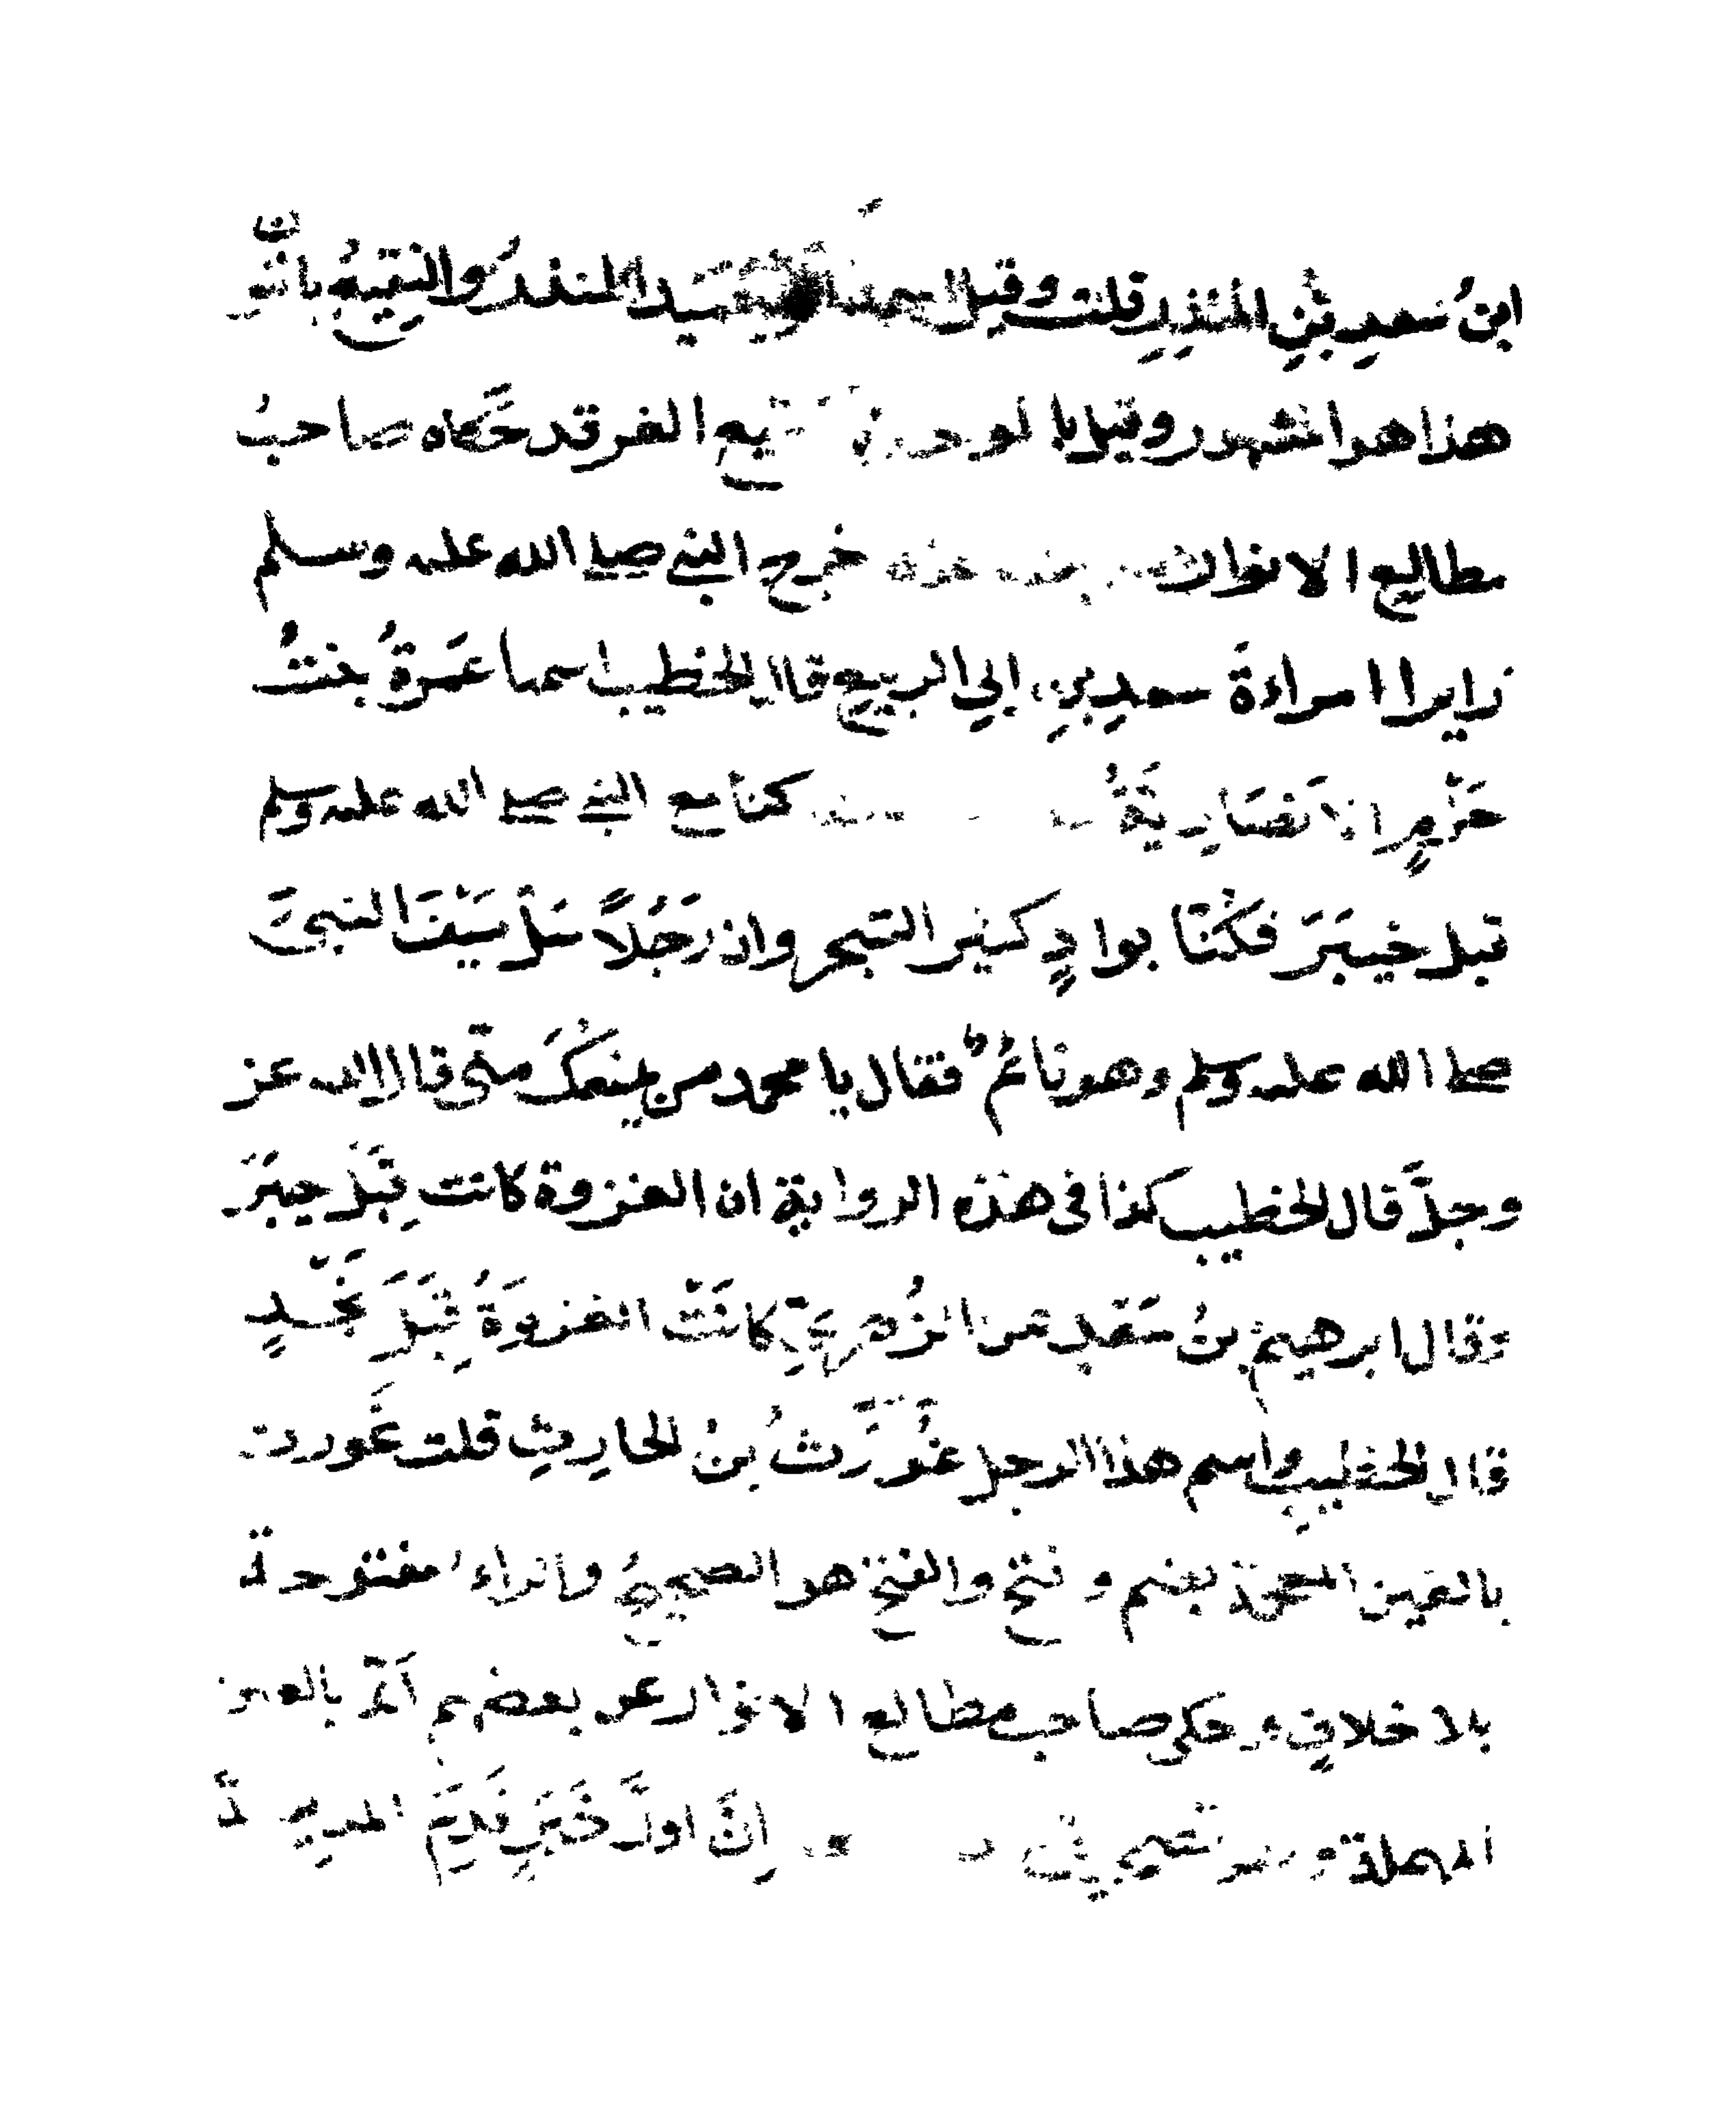 ابنُ سَعدِ بنِ المُنذِرِ قلت وقيل المنذرُ والنقيعُ بالنُّون
هذا هو المشهور وقيل با الغرقد حَكاه صاحبُ
مطالع الانوار خرج النبي صلى الله عليه وسلم
زايرا امراءةَ سعدِ بنِ ابي الربيع قال الخطيب اسمها عَمرةُ بنتُ
حَزْمٍ الانصَارِيَّةُ كنا مع النبي صلى الله عليه وسلم
قبل خيبَرَ فكُنَّا بوادٍ كثير الشجر واذ رَجُلاً سَلَّ سَيْفَ النبيَّ
صلى الله عليه وسلم وهو نائمٌ فقال يا محمد من يمنعُكَ منّى قال الله عز
وجلَّ قال الخطيب كذا في هذه الرواية ان الغزوة كانت قِبَلَ خيبَرَ
وقال ابرهيمُ بنُ سَعْدٍ عن الزُهريِّ كانَتْ الغزوَةُ قِبَلَ نَجْدٍ
قال الخطيب واسم هذا الرجل غُوَرَثُ بنُ الحارِثِ قلت غَورث
بالغين المعجمة بضم وفتح والفتح هو الصحيحُ والراء مفتوحة
بلا خلافٍ وحكى صاحب مطالع الانوار عن بعضهم انّه بالعين
المهملة اِنَّ اولَ خَبَرٍ قَدِمَ المدينة